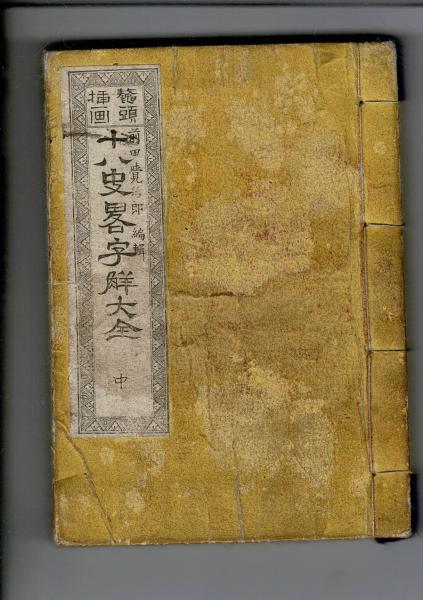 鼇頭
挿画
前田 編輯
十八史畧字解大全
中